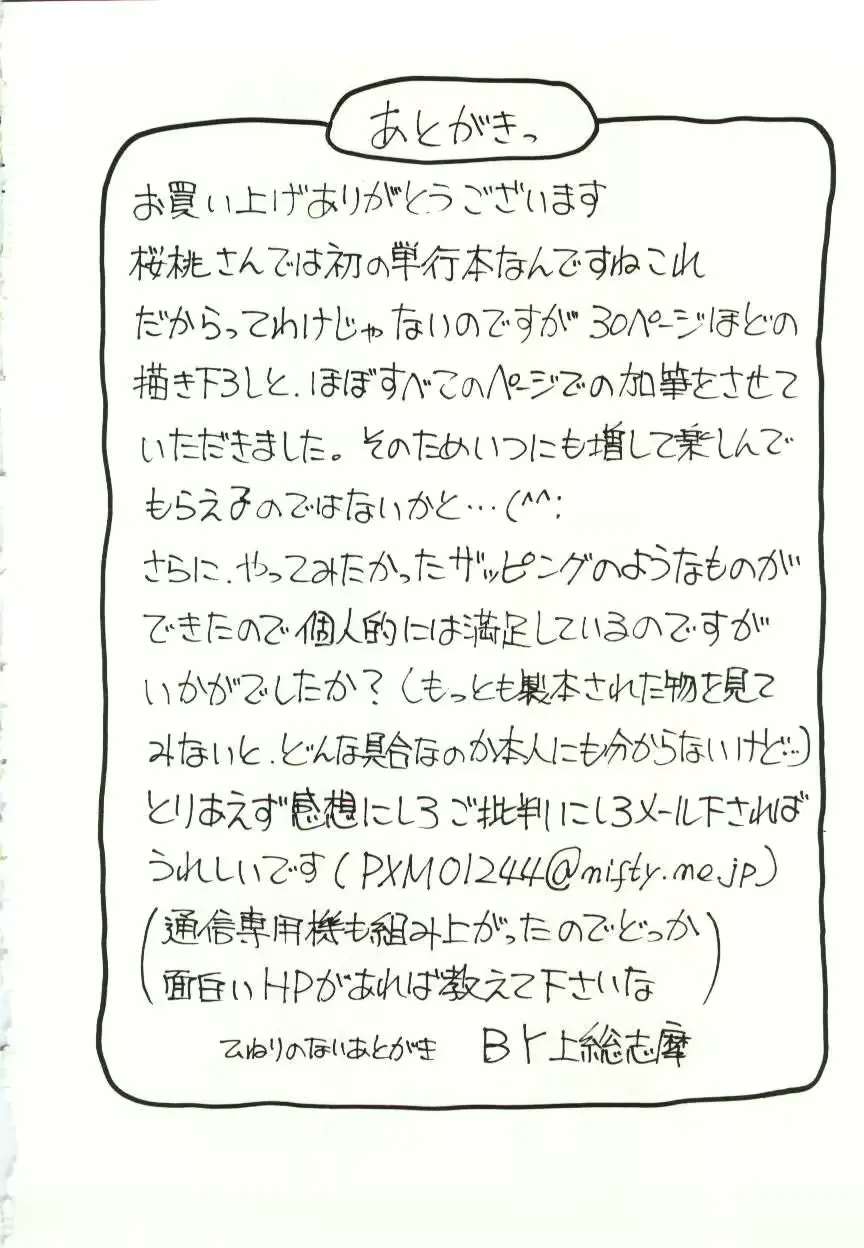 あとがきっ
お買い上げありがとうございます
桜桃さんでは初の単行本なんですねこれ
だからってわけじゃないのですが30ページほどの
描き下ろしと、ほぼすべてのページでの加筆をさせて
いただきました。そのためいつにも増して楽しんで
もらえるのではないかと…(^^;
さらに、やってみたかったザッピングのようなものが
できたので個人的には満足しているのですが
いかがでしたか?(もっとも製本された物を見て
みないと、どんな具合なのか本人にも分からないけど…)
とりあえず感想にしろご批判にしろメール下されば
うれしいです(PXM01244@nifty.ne.jp)
(通信専用機も組み上がったのでどっか
面白いHPがあれば教えて下さいな)
ひねりのないあとがき BY上総志摩